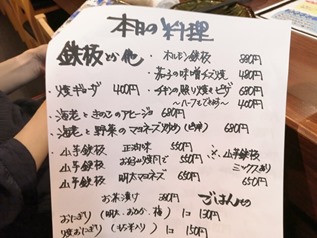 本日の料理
鉄板とか他
・ホルモン鉄板 880円
・茄子の味噌チーズ焼 480円
・焼ギョーザ 400円
・チキンの照り焼きピザ 680円
〜ハーフもできます〜 400円
・海老ときのこのアヒージョ 680円
・海老と野菜のマヨネーズ炒め 680円
・山芋鉄板 正油味 550円
・山芋鉄板 お好み焼風 550円
・山芋鉄板 明太マヨネーズ 650円
山芋鉄板
ミックス
650円
お茶漬け 380円
ごはんもの
おにぎり(明太、おかか、梅) 1コ 130円
焼おにぎり 1コ 150円